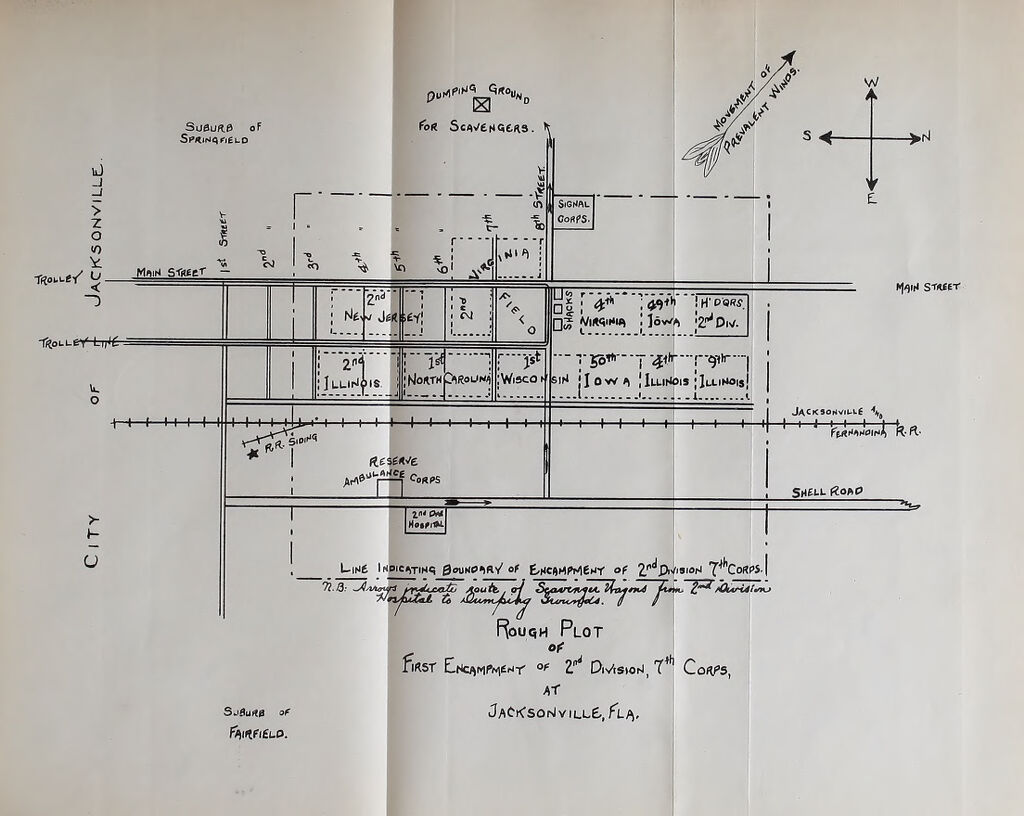 DUMPING GROUND
FOR SCAVENGERS.
MOVEMENT OF
PREVALENT WINDS.
W
S
N
E
SUBURB OF
SPRINGFIELD
CITY OF JACKSONVILLE.
SIGNAL
CORPS.
1st STREET
2nd "
3rd "
4th "
5th "
6th "
7th
8th STREET.
VIRGINIA
TROLLEY
MAIN STREET
MAIN STREET
2nd
NEW JERSEY
2nd
FIELD
SHACKS
4th
VIRGINIA
49th
IOWA
H'DQRS.
2nd DIV.
TROLLEY LINE
2nd
ILLINOIS.
1st
NORTH CAROLINA
1st
WISCONSIN
50th
IOWA
4th
ILLINOIS
9th
ILLINOIS
JACKSONVILLE AND
FERNANDINA R.R.
R.R. SIDING
RESERVE
AMBULANCE CORPS
SHELL ROAD
2nd DIV
HOSPITAL
LINE INDICATING BOUNDARY OF ENCAMPMENT OF 2nd DIVISION 7th CORPS.
N.B: Arrows indicate route of Scavenger Wagons from 2nd Division
Hospital to Dumping Grounds.
ROUGH PLOT
OF
FIRST ENCAMPMENT OF 2nd DIVISION, 7th CORPS,
AT
JACKSONVILLE, FLA.
SUBURB OF
FAIRFIELD.